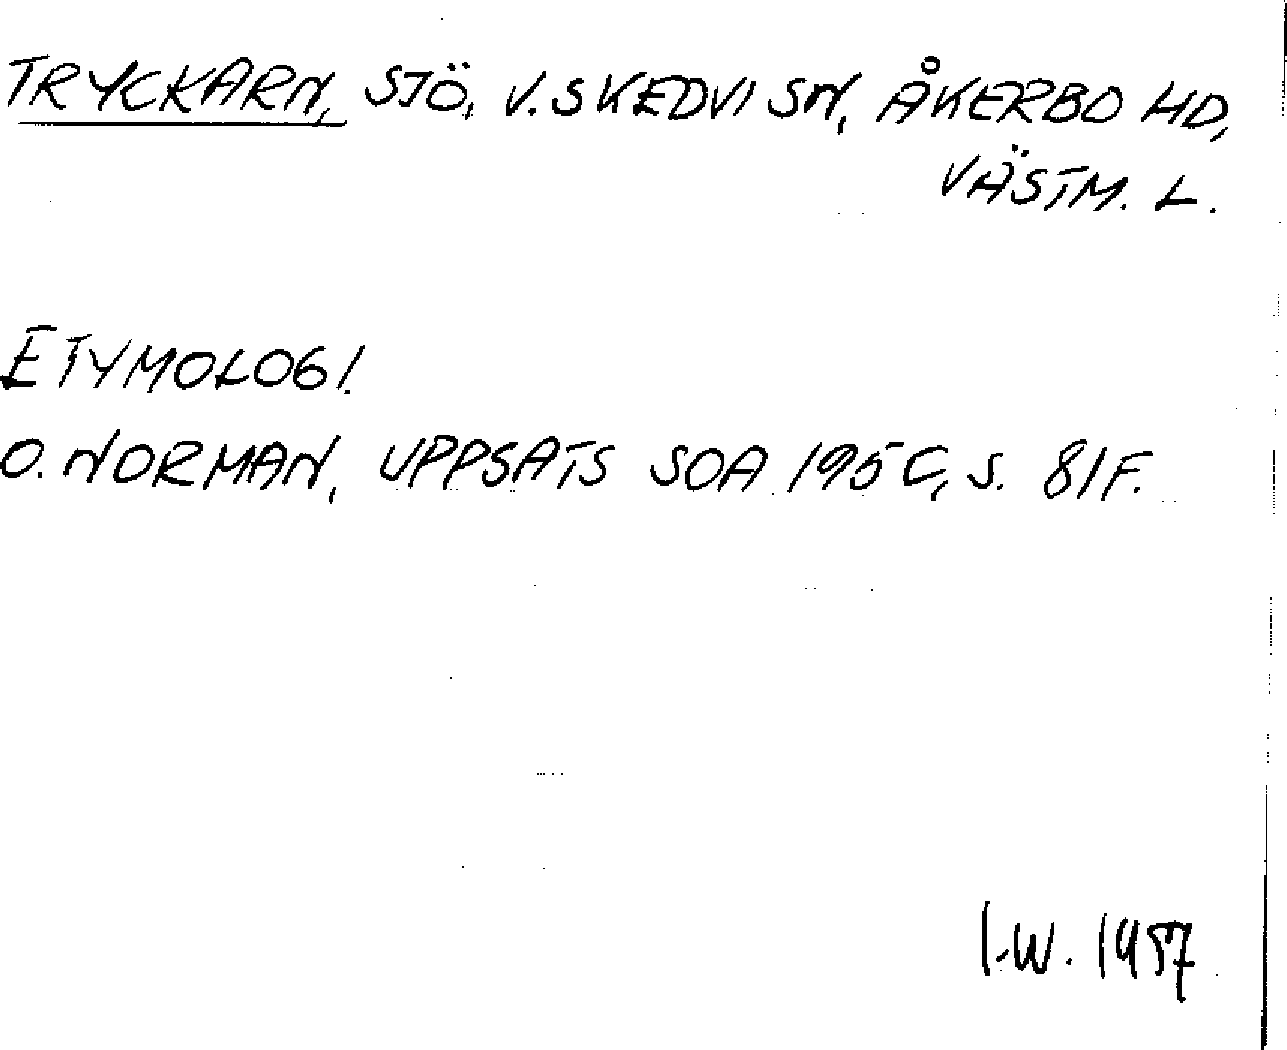 TRYCKARN, SJÖ, V. SKEDVI SN, ÅKERBO HD,
VÄSTM. L.
ETYMOLOGI.
O. NORMAN, UPPSATS SOA 1950, S. 81 F.
I.W. 1957